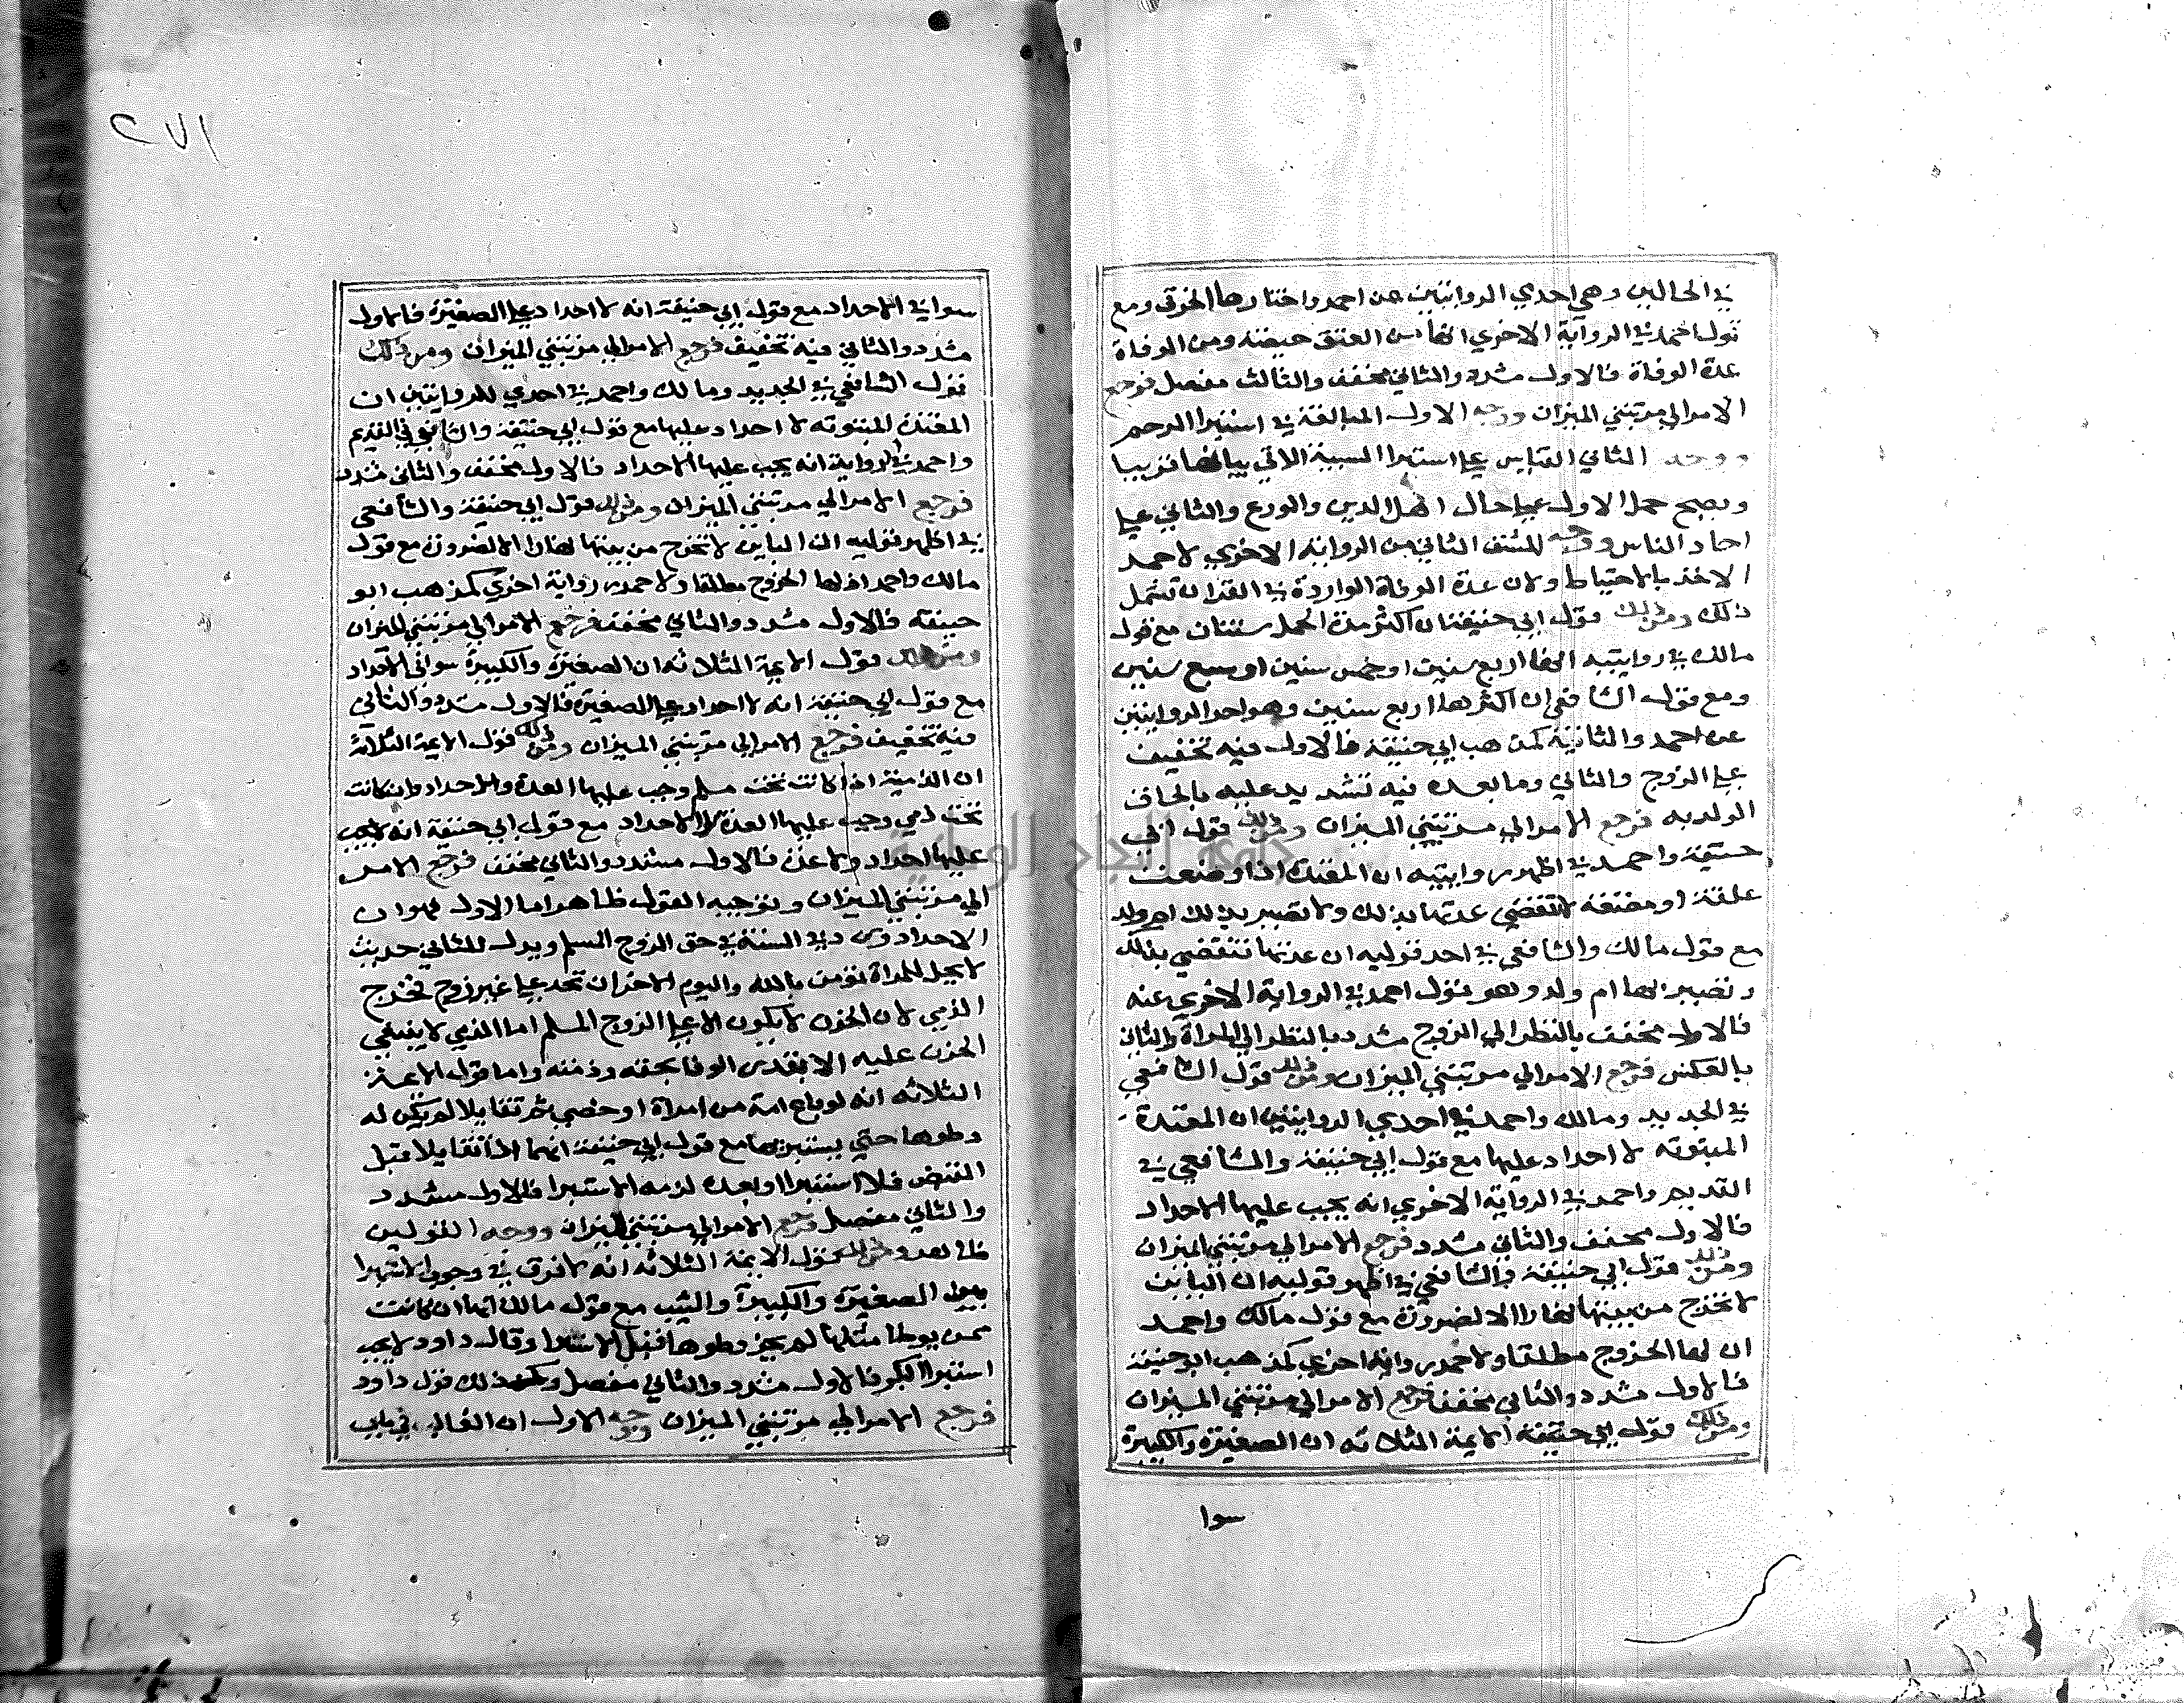 في الحالين وهي احدي الروايتين عن احمد واختارها الخرقي ومع
قول احمد في الرواية الاخري انها من العتق حيضة ومن الوفاة
عدة الوفاة فالاول مشدد والثاني مخفف والثالث مفصل فرجع
الامر الي مرتبتي الميزان ووجه الاول المبالغة في استبرا الرحم
ووجه الثاني القياس علي استبرا المسبية الاتي بيانها قريبا
ويصح حمل الاول علي حال اهل الدين والورع والثاني علي
احاد الناس ووجه الشق الثاني من الرواية الاخري لاحمد
الاخذ بالاحتياط ولان عدة الوفاة الواردة في القران تشمل
ذلك ومن ذلك قول ابي حنيفة ان اكثر مدة الحمل سنتان مع قول
مالك في روايتيه انها اربع سنين او خمس سنين او سبع سنين
ومع قول الشافعي ان اكثرها اربع سنين وهو احد الروايتين
عن احمد والثانية كمذهب ابي حنيفة فالاول فيه تخفيف
علي الزوج والثاني وما بعده فيه تشديد عليه بالحاق
الولد به فرجع الامر الي مرتبتي الميزان ومن ذلك قول ابي
حنيفة واحمد في اظهر روايتيه ان المعتدة اذا وضعت
علقة او مضغة لا تنقضي عدتها بذلك ولا تصير بذلك ام ولد
مع قول مالك والشافعي في احد قوليه ان عدتها تنقضي بذلك
وتصير بها ام ولد وهو قول احمد في الرواية الاخري عنه
فالاول مخفف بالنظر الي الزوج مشدد بالنظر الي المراة والثاني
بالعكس فرجع الامر الي مرتبتي الميزان ومن ذلك قول الشافعي
في الجديد ومالك واحمد في احدي الروايتين ان المعتدة
المبتوتة لا احداد عليها مع قول ابي حنيفة والشافعي في
القديم واحمد في الرواية الاخري انه يجب عليها الاحداد
فالاول مخفف والثاني مشدد فرجع الامر الي مرتبتي الميزان
ومن ذلك قول ابي حنيفة والشافعي في اظهر قوليه ان الباين
لا تخرج من بيتها نهارا الا لضرورة مع قول مالك واحمد
ان لها الخروج مطلقا ولاحمد رواية اخري كمذهب ابو حنيفة
فالاول مشدد والثاني مخفف فرجع الامر الي مرتبتي الميزان
ومن ذلك قول ابي حنيفة الايمة الثلاثه ان الصغيرة والكبيرة
سوا
٢٧١
سوا في الاحداد مع قول ابي حنيفة انه لا احداد علي الصغيرة فالاول
مشدد والثاني فيه تخفيف فرجع الامر الي مرتبتي الميزان ومن ذلك
قول الشافعي في الجديد ومالك واحمد في احدي الروايتين ان
المعتدة المبتوته لا احداد عليها مع قول ابي حنيفة والشافعي في القديم
واحمد في الرواية انه يجب عليها الاحداد فالاول مخفف والثاني مشدد
فرجع الامر الي مرتبتي الميزان ومن ذلك قول ابي حنيفة والشافعي
في اظهر قوليه ان الباين لا تخرج من بيتها نهارا الا لضرورة مع قول
مالك واحمد ان لها الخروج مطلقا ولاحمد رواية اخري كمذهب ابو
حنيفة فالاول مشدد والثاني مخفف فرجع الامر الي مرتبتي الميزان
ومن ذلك قول الايمة الثلاثه ان الصغيرة والكبيرة سوا في الاحداد
مع قول ابي حنيفة انه لا احداد علي الصغيرة فالاول مشدد والثاني
فيه تخفيف فرجع الامر الي مرتبتي الميزان ومن ذلك قول الايمة الثلاثة
ان الذمية اذا كانت تحت مسلم وجب عليها العدة والاحداد وان كانت
تحت ذمي وجب عليها العدة لا الاحداد مع قول ابي حنيفة انه لا يجب
عليها احداد ولا عدة فالاول مشدد والثاني مخفف فرجع الامر
الي مرتبتي الميزان وتوجيه القول ظاهر اما الاول فهو ان
الاحداد في السنة في حق الزوج المسلم ويدل للثاني حديث
لا يحل للمراة تؤمن بالله واليوم الاخر ان تحد علي غير زوج فخرج
الذمي لان الحزن لا يكون الا علي الزوج المسلم اما الذمي لا ينبغي
الحزن عليه الا بقدر الوفا بحقه وذمته واما قول الايمة
الثلاثه انه لو باع امة من امراة او خصي ثم تقايلا لم يكن له
وطوها حتي يستبريها مع قول ابي حنيفة انهما اذا تقايلا قبل
القبض فلا استبرا او بعده لزمه الاستبرا فالاول مشدد
والثاني مفصل فرجع الامر الي مرتبتي الميزان ووجه القولين
ظاهر ومن ذلك قول الايمة الثلاثه انه لا فرق في وجوب الاستبرا
بين الصغيرة والكبيرة والثيب مع قول مالك انها ان كانت
ممن يوطا مثلها لم يجز وطوها قبل الاستبرا وقال داود لا يجب
استبرا البكر فالاول مشدد والثاني مفصل وكذلك قول داود
فرجع الامر الي مرتبتي الميزان ووجه الاول ان الغالب في باب
جامعة النجاح الوطنية